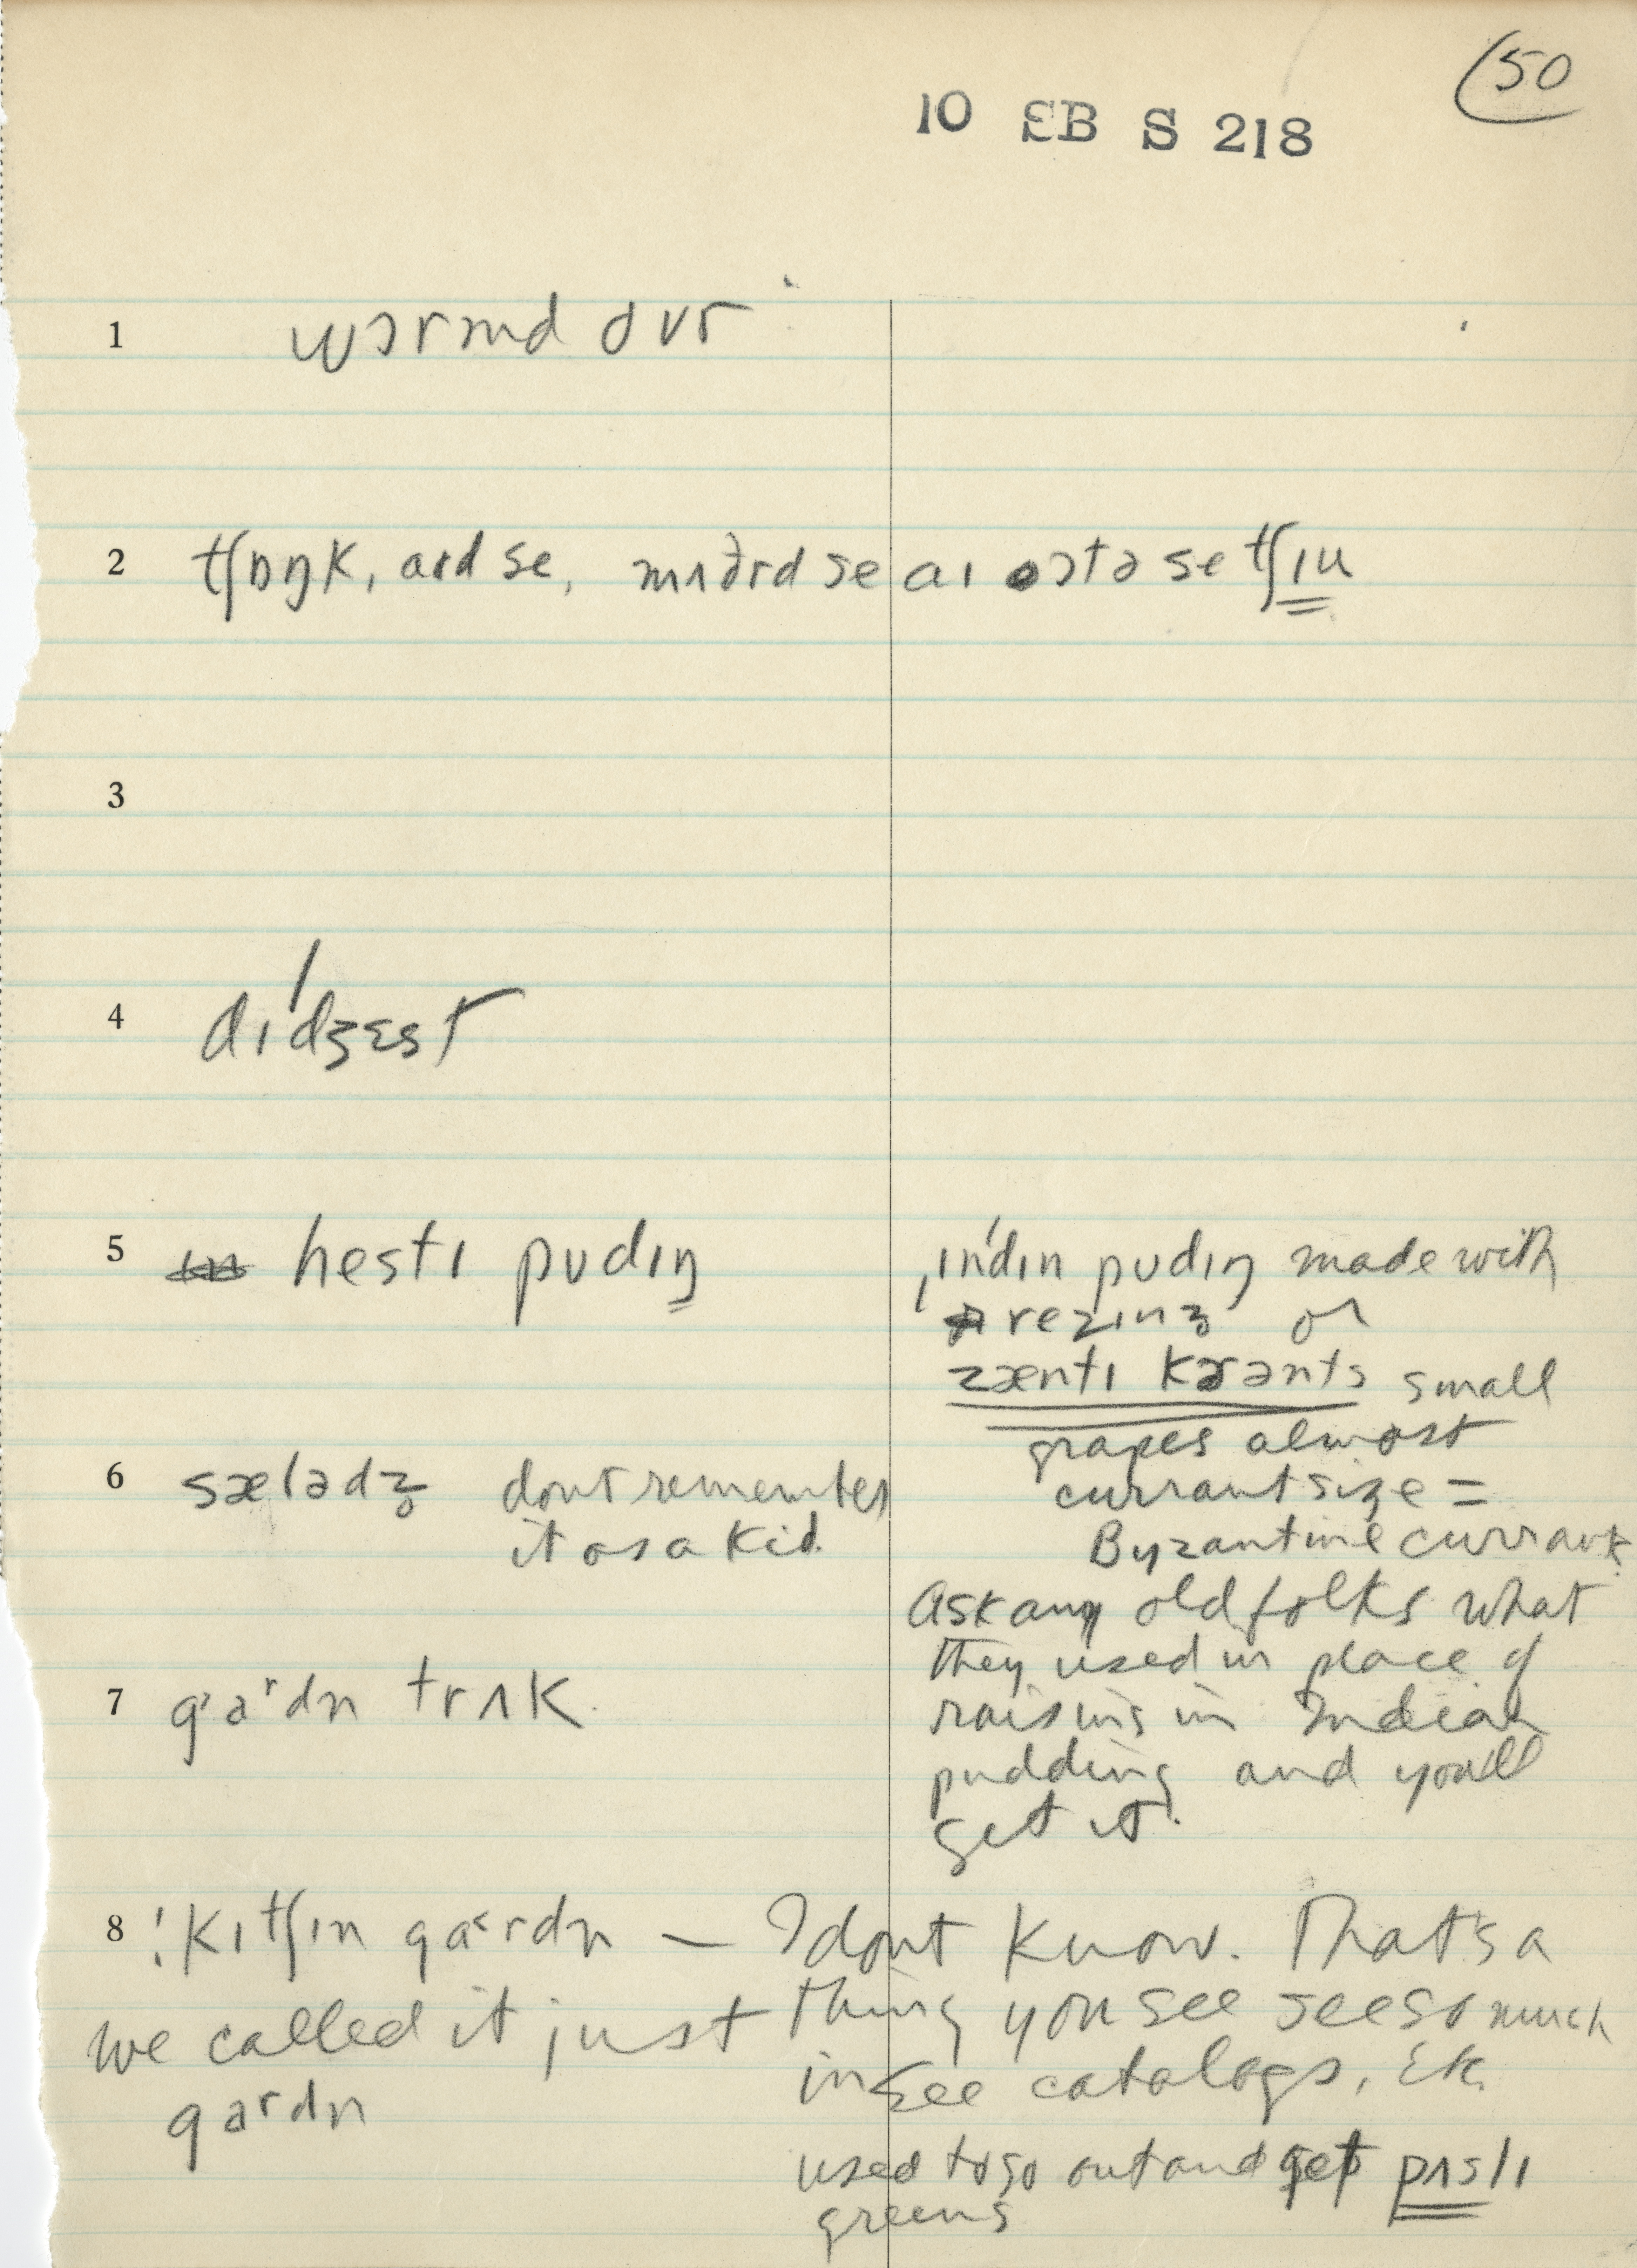 50
10 EB S 218
1 wɔrmd ovr
2 tʃɒŋk, aɪd se, mʌðrd se aɪ ɔtə se tʃɪu
3
4 dɪ'dʒɛst
5 hestɪ pudɪŋ
'ɪndɪn pudɪŋ made with
rezɪnz or
zæntɪ kɝənts small
grapes almost
currant size =
Byzantine currant.
6 sælədz dont remember
it as a kid.
Ask any old folks what
they used in place of
raisins in Indian
pudding and you'll
get it.
7 gaʳdn trʌk
8 !kɪtʃɪn ga<rdn — I dont know. That's a
thing you see see so much
in see catalogs, etc.
we called it just
gardn
used to go out and get pʌslɪ
greens